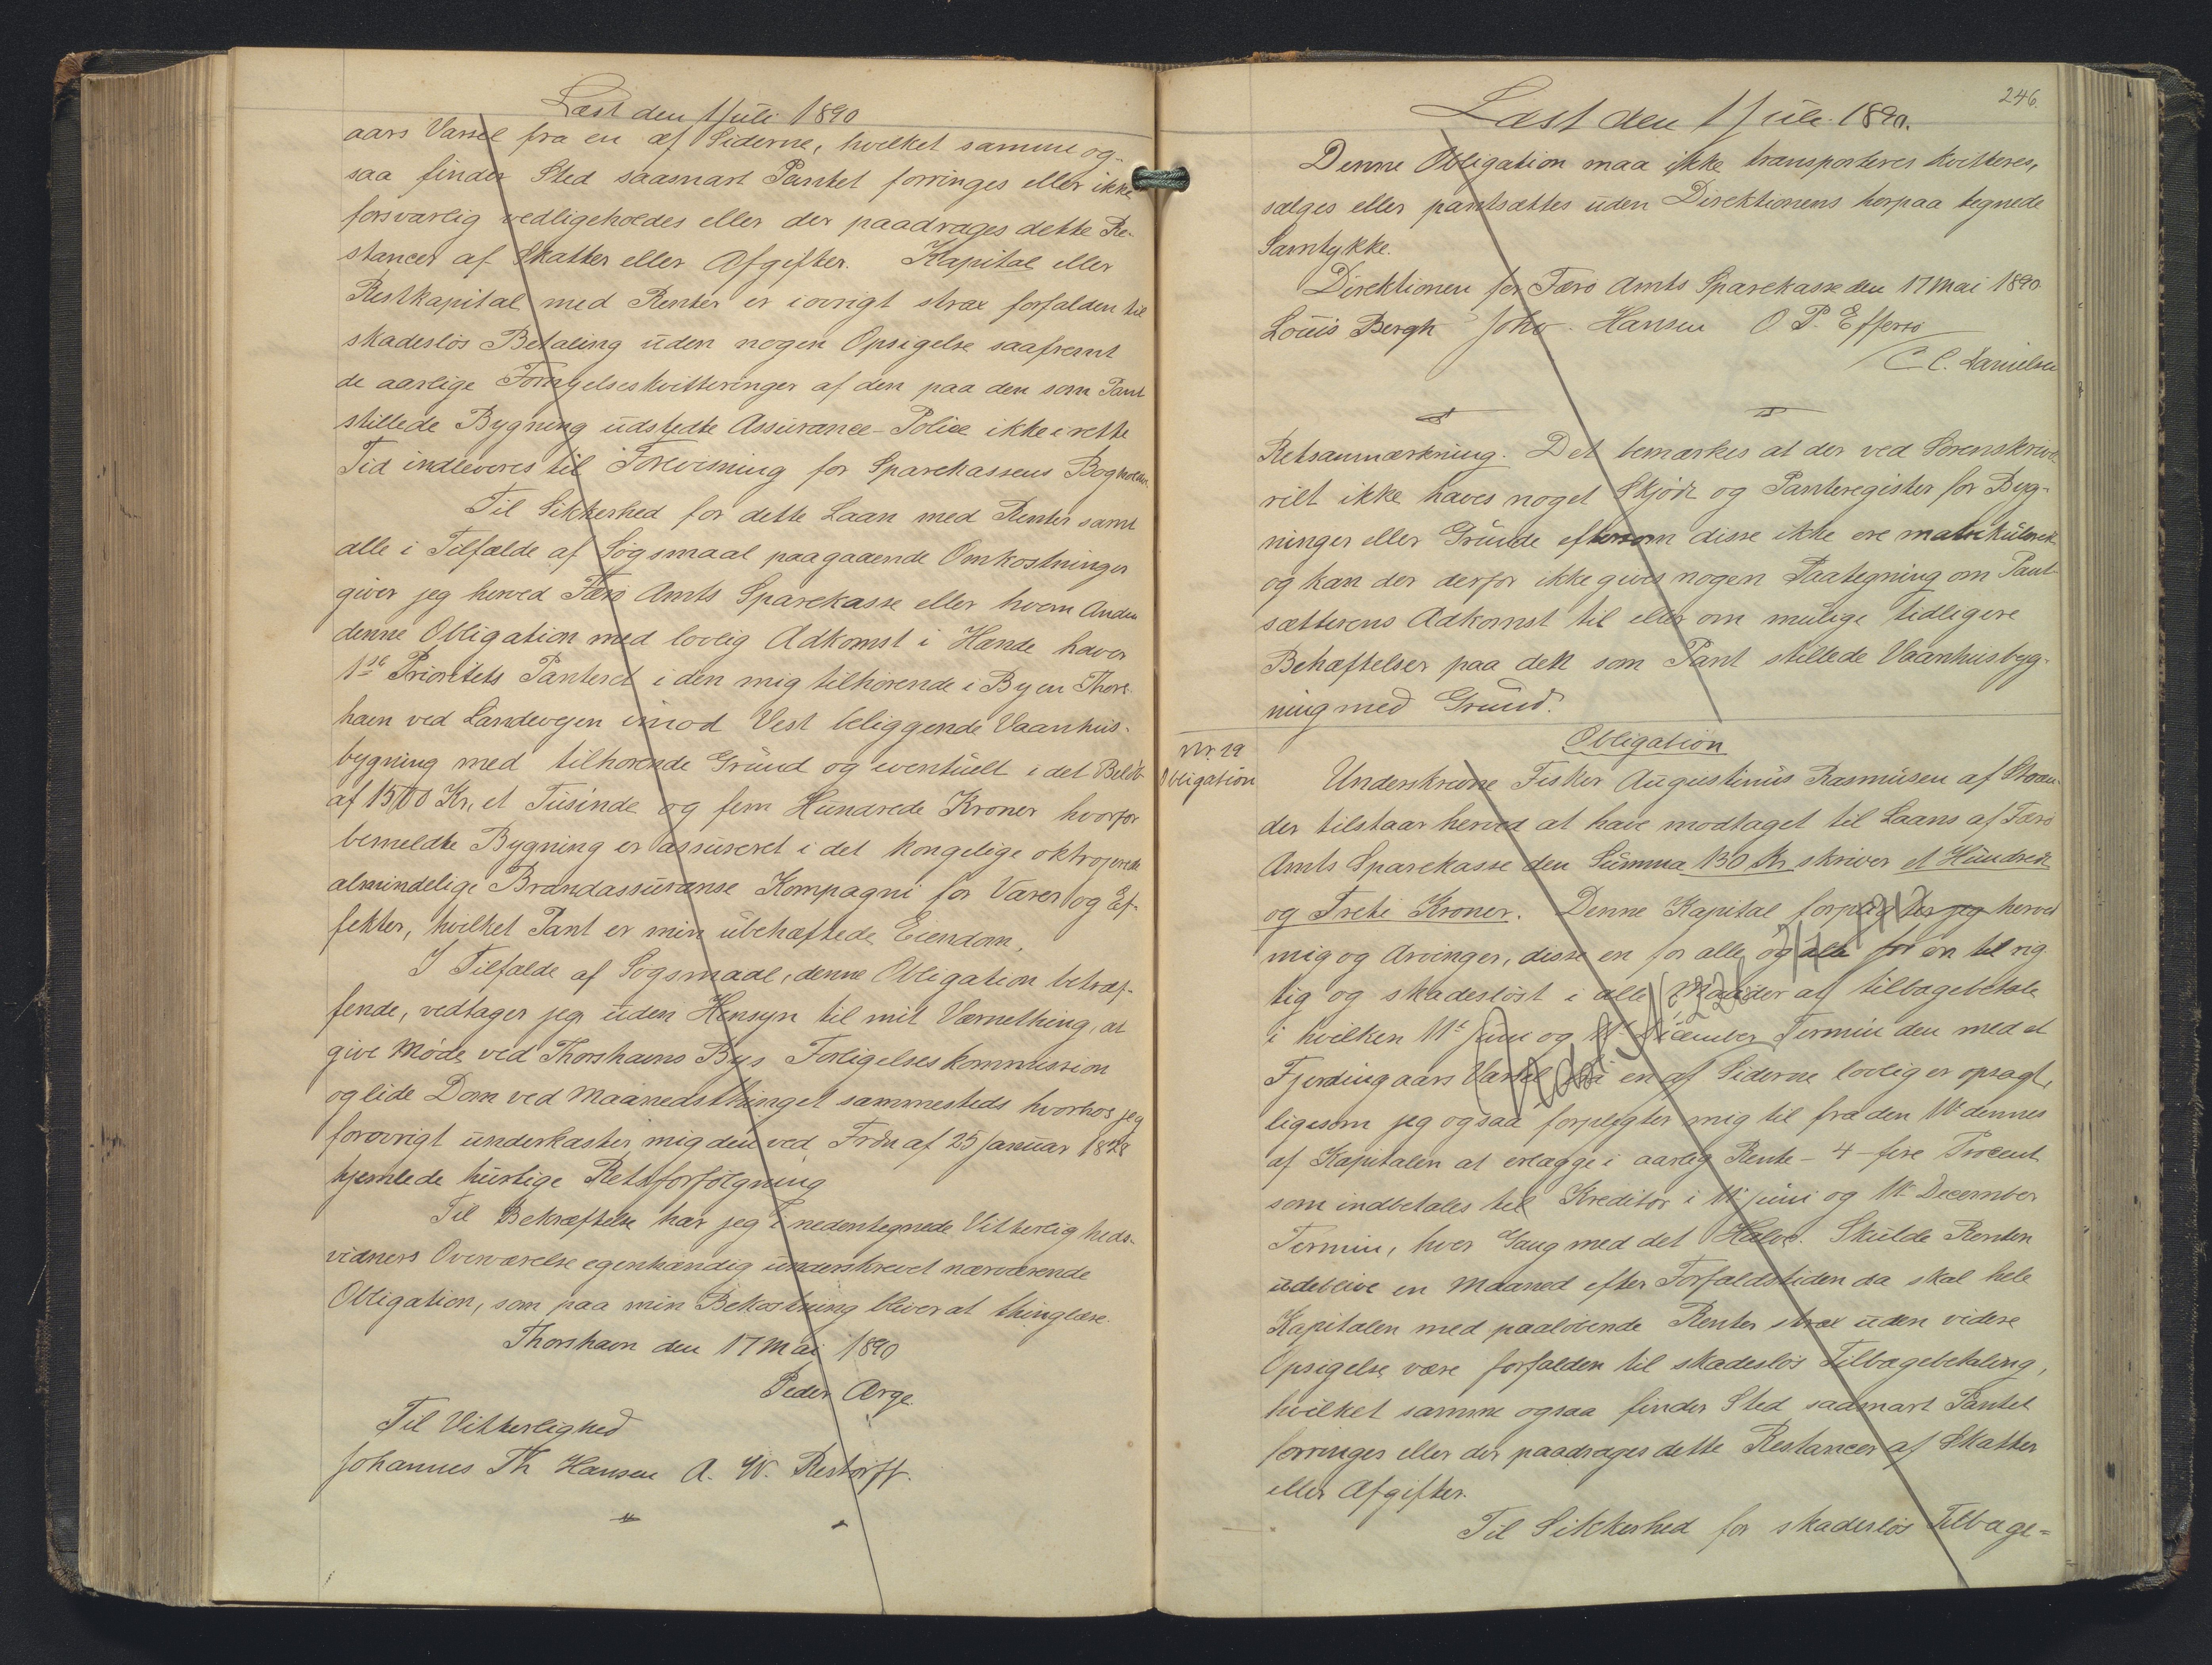 Læst den 1 Juli 1890
aars Varsel fra en af Siderne, hvilket samme og-
saa finder Sted saasnart Pantet forringes eller ikke
forsvarlig vedligeholdes eller der paadrages dette Re-
stancer af Skatter eller Afgifter. Kapital eller
Restkapital med Renter er iøvrigt strax forfalden til
skadesløs Betaling uden nogen Opsigelse saafremt
de aarlige Fornyelseskvitteringer af den paa den som Pant
stillede Bygning udstedte Assurance-Police ikke i rette
Tid indleveres til Forevisning for Sparekassens Bogholder.
Til Sikkerhed for dette Laan med Renter samt
alle i Tilfælde af Søgsmaal paagaaende Omkostninger
giver jeg herved Færø Amts Sparekasse eller hvem Anden
denne Obligation med lovlig Adkomst i Hænde haver
1ste Prioritets Panteret i den mig tilhørende i Byen Thors-
havn ved Landevejen imod Vest beliggende Vaanhus-
bygning med tilhørende Grund og eventuelt i det Beløb
af 1500 Kr, et Tusinde og fem Hundrede Kroner hvorfor
bemeldte Bygning er assureret i det kongelige oktrojerede
almindelige Brandassuranse Kompagni for Varer og Ef-
fekter, hvilket Pant er min ubehæftede Eiendom.
I Tilfælde af Søgsmaal, denne Obligation betræf-
fende, vedtager jeg uden Hensyn til mit Værnething, at
give Møde ved Thorshavns Bys Forligelseskommission
og lide Dom ved Maanedsthinget sammesteds hvorhos jeg
forøvrigt underkaster mig den ved Frdn af 25 Januar 1828
hjemlede hurtige Retsforfølgning
Til Bekræftelse har jeg i nedentegnede Vitterligheds-
vidners Overværelse egenhændig underskrevet nærværende
Obligation, som paa min Bekostning bliver at thinglæse.
Thorshavn den 17 Mai 1890
Peder Arge.
Til Vitterlighed
Johannes Th Hansen A. W. Restorff.
246.
Læst den 1 Juli 1890.
Denne Obligation maa ikke transporteres kvitteres,
sælges eller pantsættes uden Direktionens herpaa tegnede
Samtykke.
Direktionen for Færø Amts Sparekasse den 17 Mai 1890
Louis Bergh Johs. Hansen O P. Effersø
C C. Danielsen
Retsanmærkning. Det bemærkes at der ved Sorenskrive-
riet ikke haves noget Skjøde og Panteregister for Byg-
ninger eller Grunde eftersom disse ikke ere matrikulerede
og kan der derfor ikke gives nogen Paategning om Pant-
sætterens Adkomst til eller om mulige tidligere
Behæftelser paa dett som Pant stillede Vaanhusbyg-
ning med Grund.
Obligation
Nr. 29
Obligation
Underskrevne Fisker Augustinus Rasmusen af
der tilstaar herved at have modtaget til Laans af Færø
Amts Sparekasse den Summa 130 Kr skriver et Hundrede
og Treti Kroner. Denne Kapital forpligter jeg herved
mig og Arvinger, disse en for alle og alle for en til rig-
tig og skadesløst i alle Maader at tilbagebetale
i hvilken 11te Juni og 11te December Termin den med et
Fjerdingaars Varsel fra en af Siderne lovlig er opsagt,
ligesom jeg ogsaa forpligter mig til fra den 11te dennes
af Kapitalen at erlægge i aarlig Rente - 4 - fire Procent
som indbetales til Kreditor i 11te Juni og 11te December
Termin, hver Gang med det Halve. Skulde Renten
udeblive en Maaned efter Forfaldstiden da skal hele
Kapitalen med paaløbende Renter strax uden videre
Opsigelse være forfalden til skadesløs Tilbagebetaling,
hvilket samme ogsaa finder Sted saasnart Pantet
forringes eller der paadrages dette Restancer af Skatter
eller Afgifter.
Til Sikkerhed for skadesløs Tilbage=